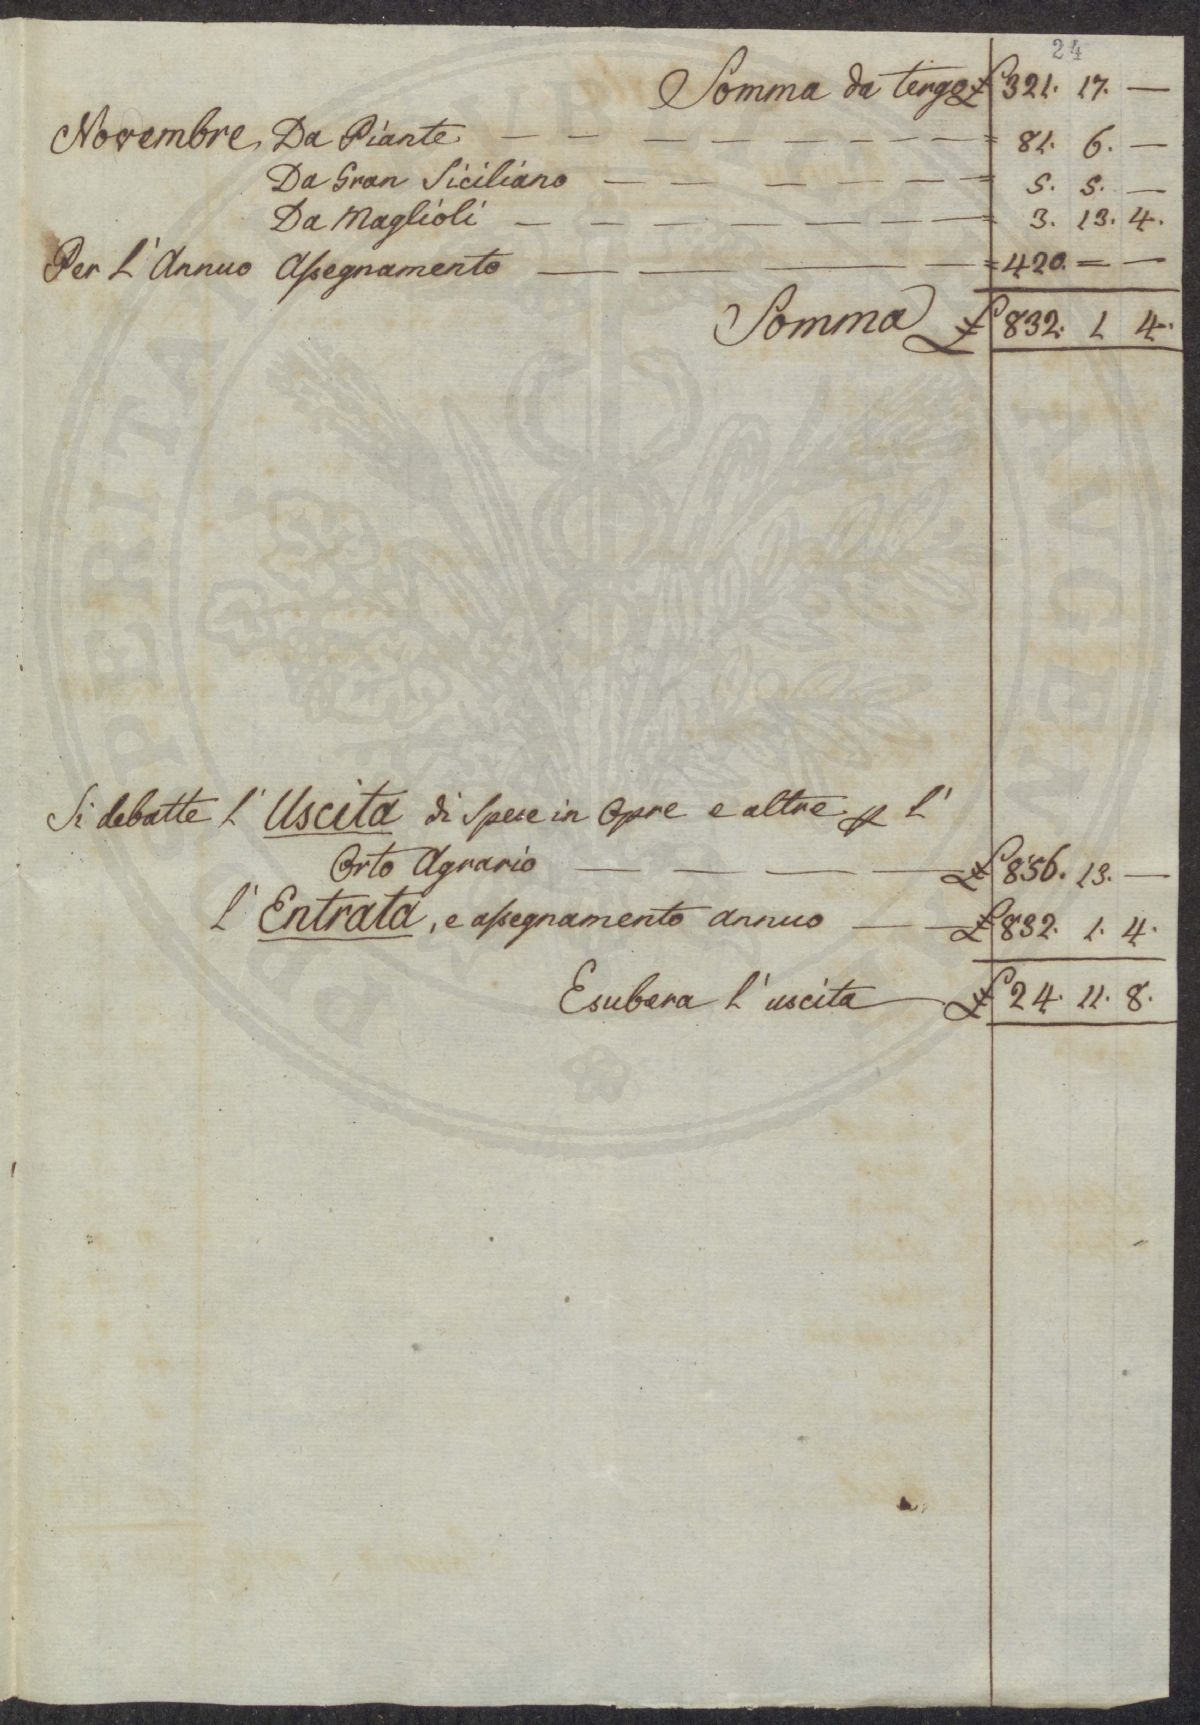 24
Somma da tergo £ 321. 17. —
Novembre, Da Piante — — — — — — — = 81. 6. —
Da Gran Siciliano — — — — — — = 5. 5. —
Da Maglioli — — — — — — — = 3. 13. 4.
Per l'Annuo Assegnamento — — — = 420. = —
Somma £ 832. 1 4.
Si debatte l'Uscita di Spese in Opre e altre p l'
Orto Agrario — — — — £ 856. 13. —
l'Entrata, e assegnamento annuo — — £ 832. 1. 4.
Esubera l'uscita — £ 24. 11. 8.
PERITA AUGET